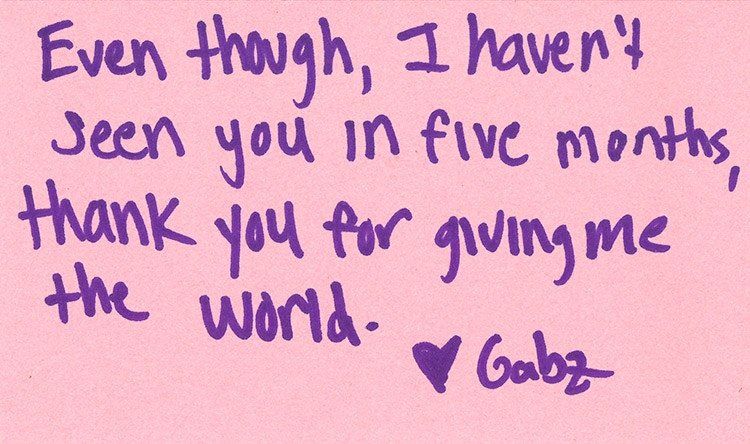 Even though, I haven't
seen you in five months,
thank you for giving me
the world.
♥ Gabz